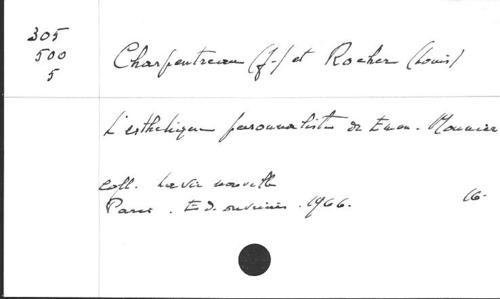 305
500
5
Charpentreau (J-) et Rocher (Louis)
L'esthétique personnaliste de Emm. Mounier
coll. La vie nouvelle
Paris. Ed. ouvrières. 1966. 16-